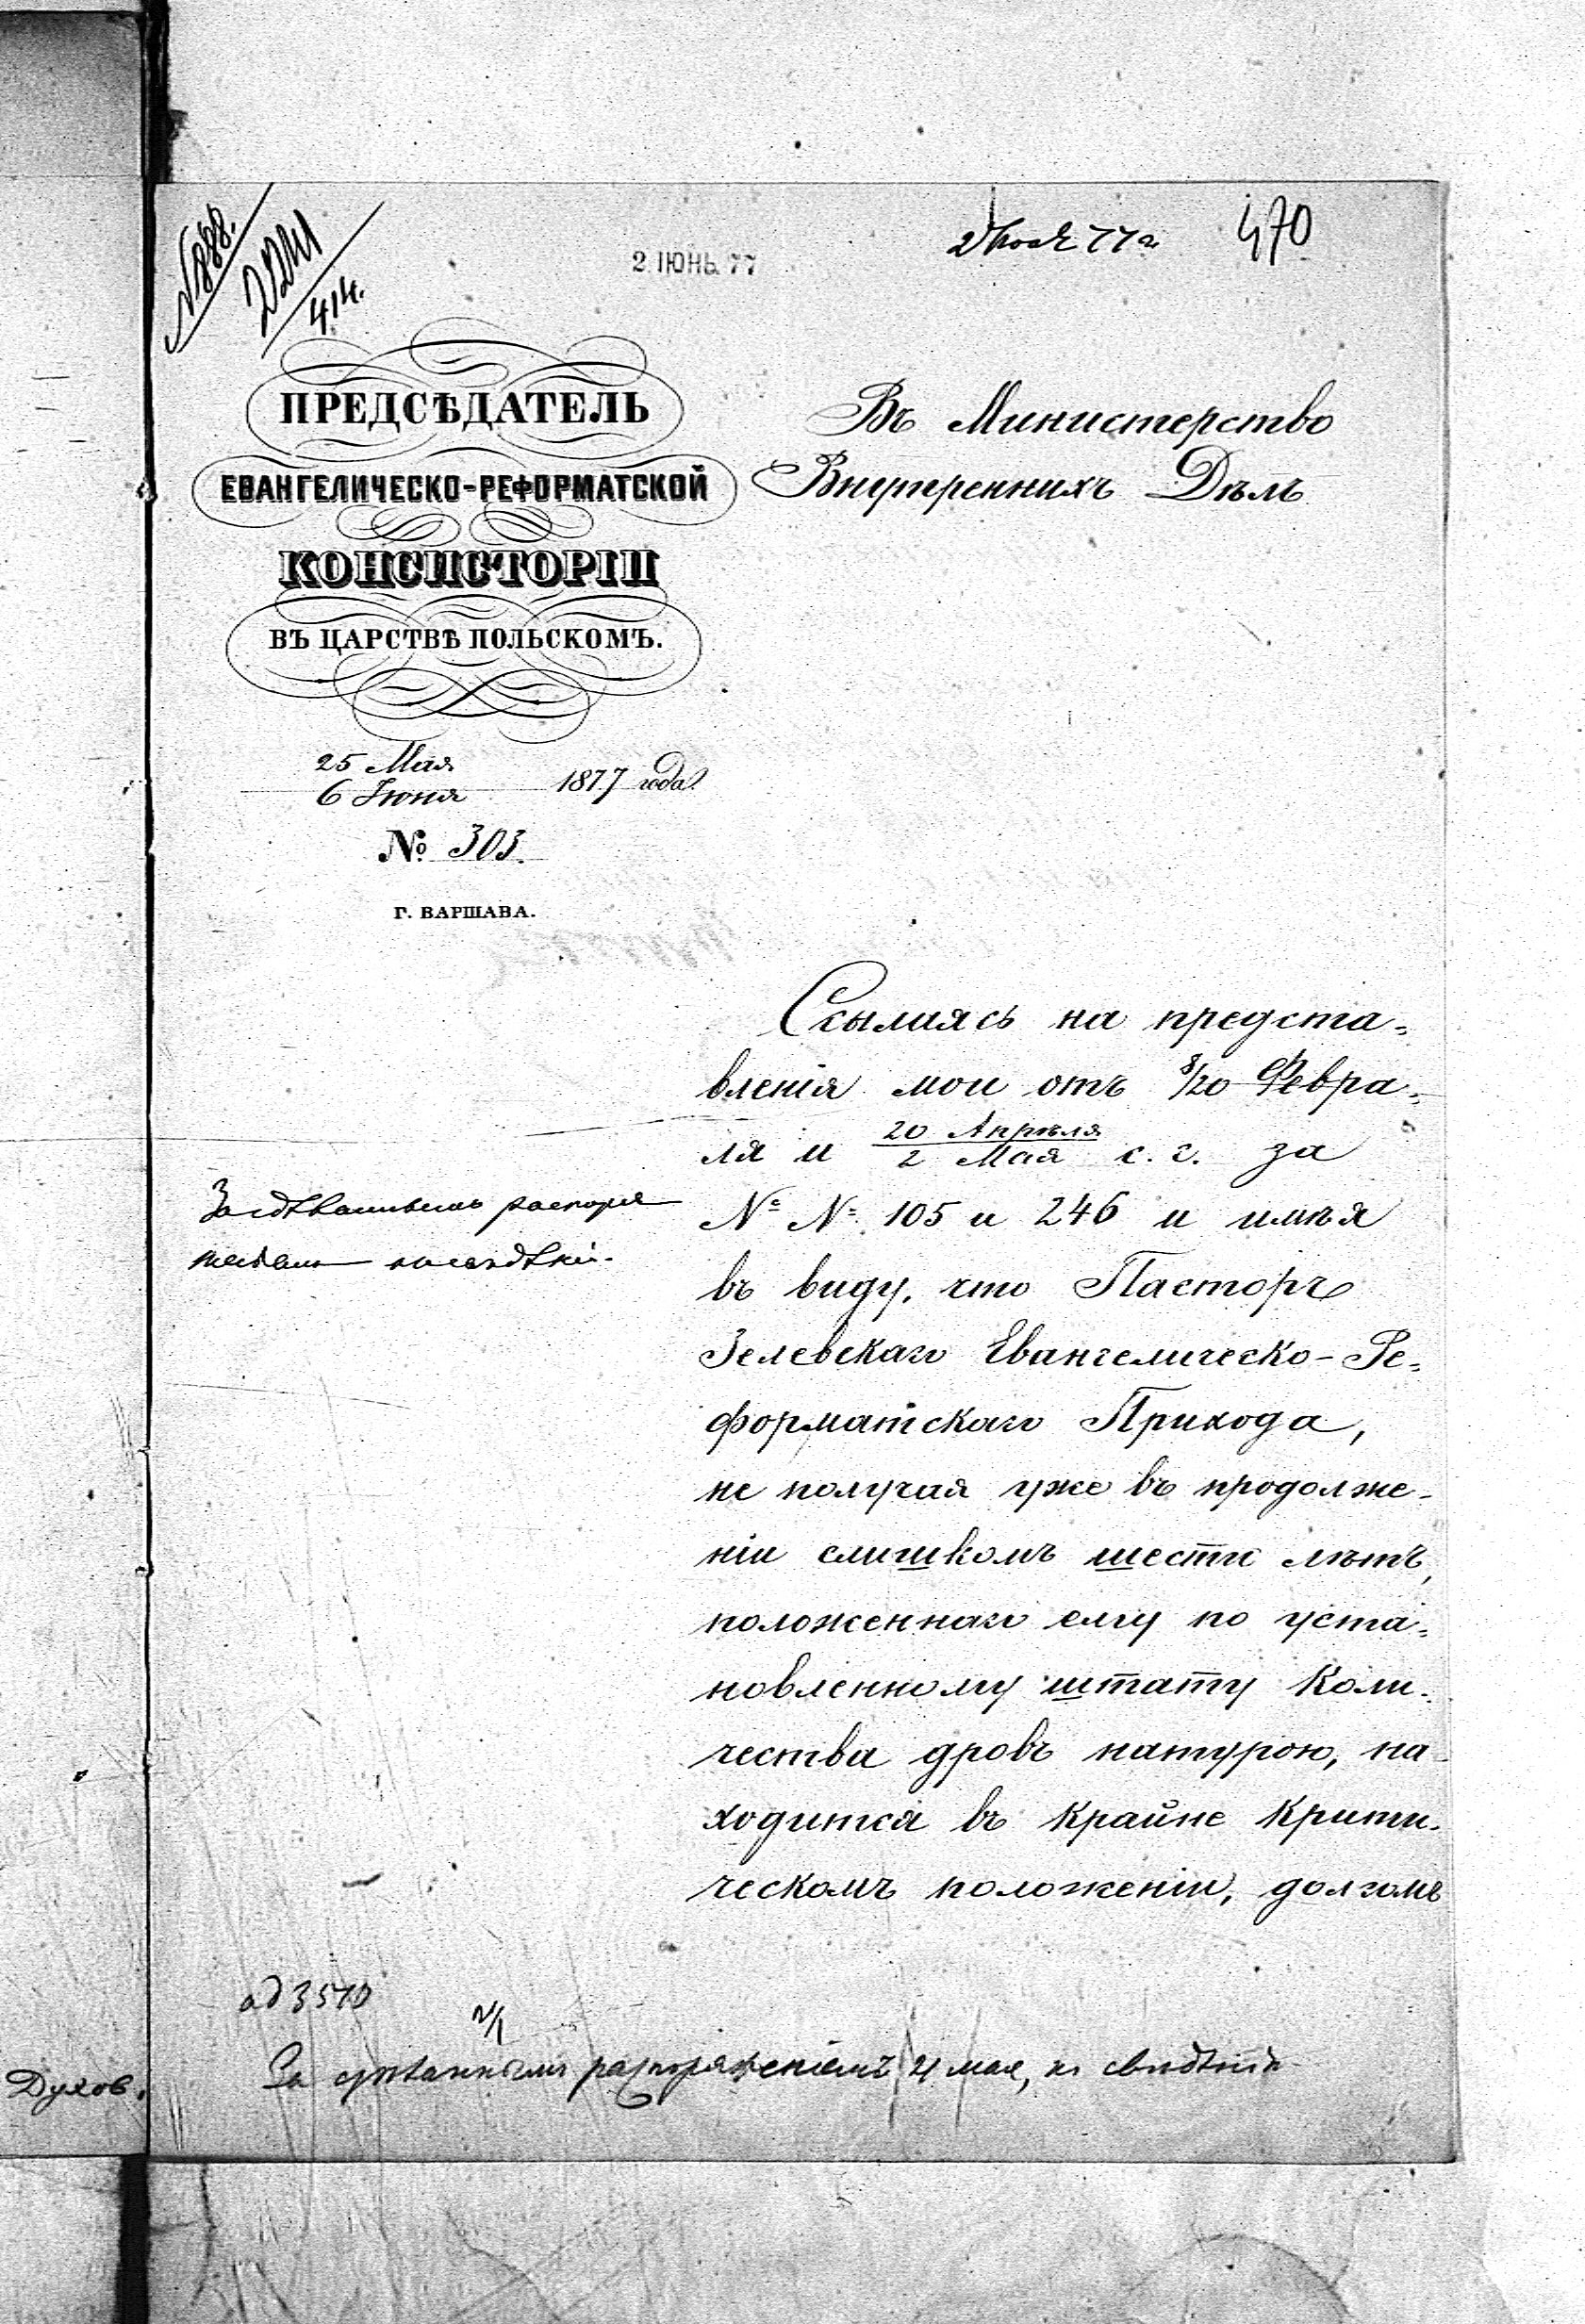 № 888.
414.
2 ІЮНЬ 77
2 Іюня 77 г.
470
ПРЕДСѢДАТЕЛЬ
ЕВАНГЕЛИЧЕСКО-РЕФОРМАТСКОЙ
КОНСИСТОРІИ
ВЪ ЦАРСТВѢ ПОЛЬСКОМЪ.
25 Мая
6 Іюня 1877 года.
№ 303.
Г. ВАРШАВА.
Въ Министерство
Внутреннихъ Дѣлъ
Ссылаясь на предста-
вленія мои отъ 8/20 Февра-
ля и 20 Апрѣля / 2 Мая с. г. за
№ № 105 и 246 и имѣя
въ виду, что Пасторъ
Зелевскаго Евангелическо-Ре-
форматскаго Прихода,
не получая уже въ продолже-
ніи слишкомъ шести лѣтъ,
положеннаго ему по уста-
новленному штату коли-
чества дровъ натурою, на-
ходится въ крайне крити-
ческомъ положеніи, долгомъ
За сдѣланнымъ распоря
женіемъ къ свѣдѣнію.
ad 3570
За сдѣланнымъ распоряженіемъ 21 мая, къ свѣдѣнію
Духов.